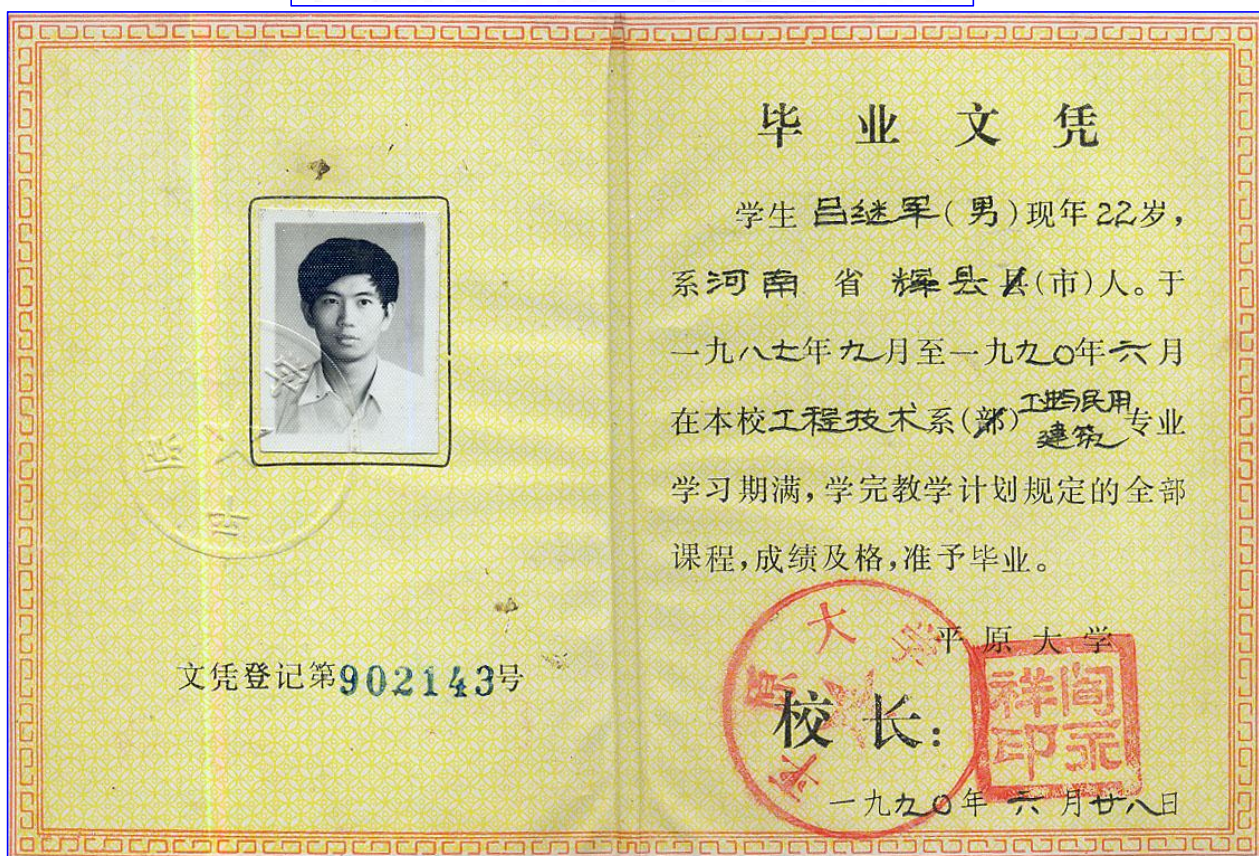 文凭登记第902143号
毕业文凭
学生吕继军(男)现年22岁,
系河南省辉县县(市)人。于
一九八七年九月至一九九〇年六月
在本校工程技术系(部)工业与民用建筑专业
学习期满,学完教学计划规定的全部
课程,成绩及格,准予毕业。
平原大学
校长:
阎永祥印
一九九〇年六月廿八日
平原大学